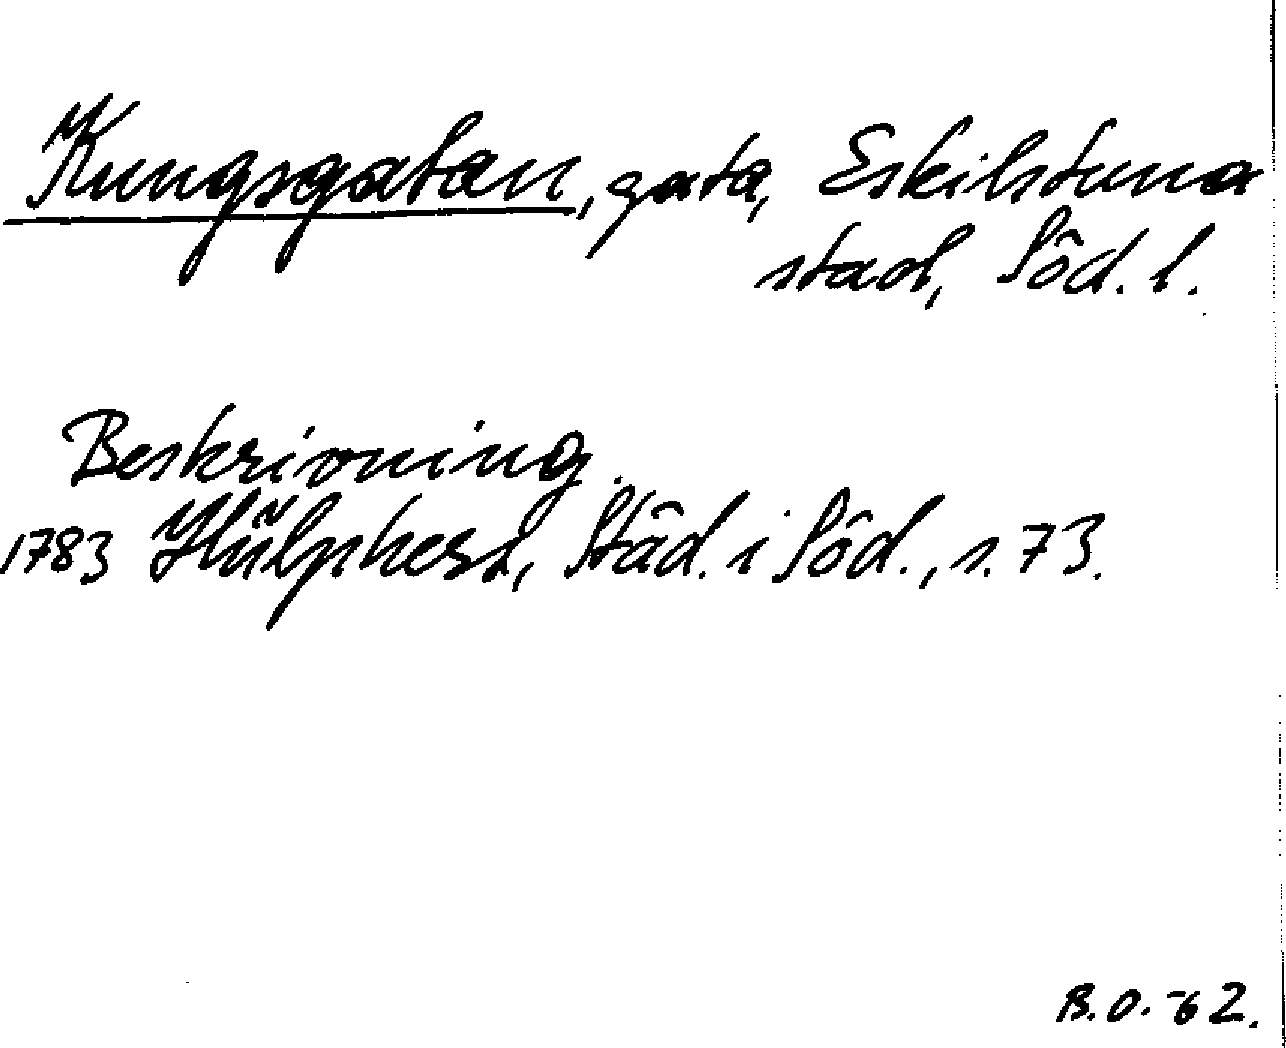 Kungsgatan, gata, Eskilstuna
stad, Söd. l.
Beskrivning.
1783 Hülphers, Städ. i Söd., s. 73.
B.O. -62.